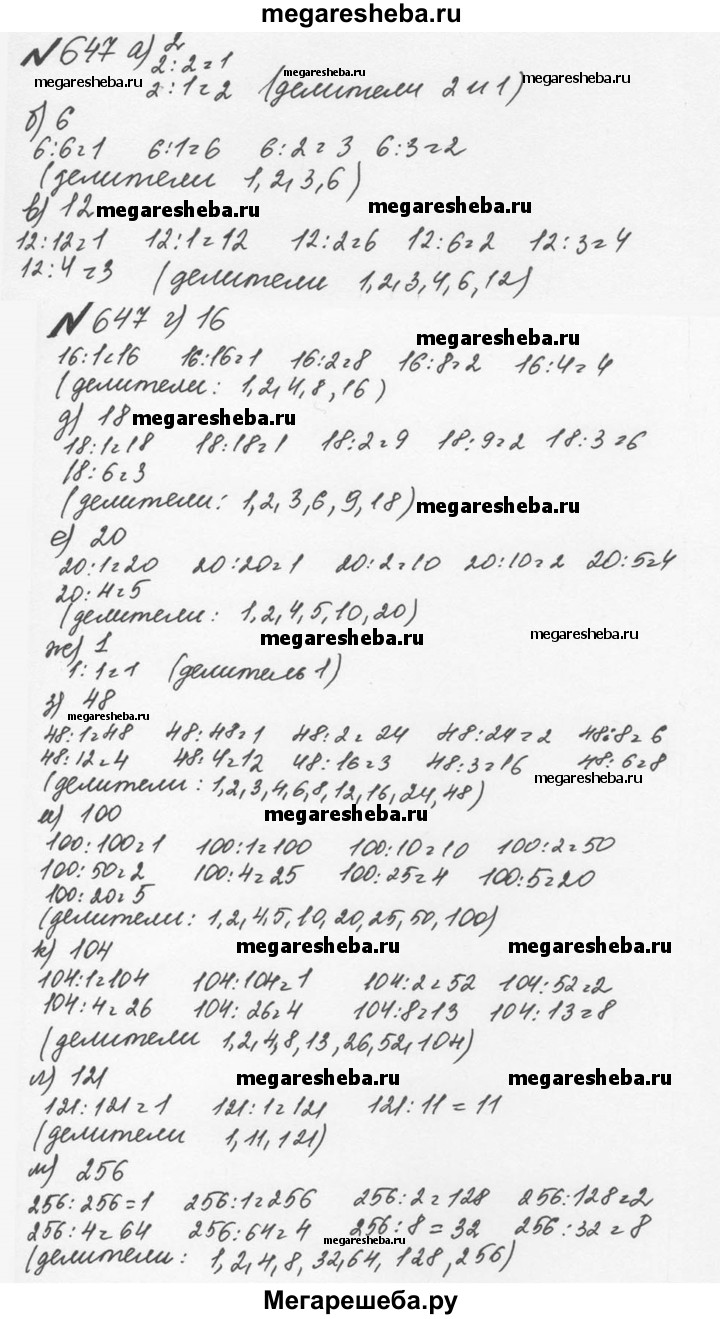 megaresheba.ru
№647 а) 2
2:2=1
megaresheba.ru megaresheba.ru megaresheba.ru
2:1=2 (делители 2 и 1)
б) 6
6:6=1 6:1=6 6:2=3 6:3=2
(делители 1,2,3,6)
в) 12 megaresheba.ru megaresheba.ru
12:12=1 12:1=12 12:2=6 12:6=2 12:3=4
12:4=3 (делители 1,2,3,4,6,12)
№647 г) 16
megaresheba.ru
16:1=16 16:16=1 16:2=8 16:8=2 16:4=4
(делители: 1,2,4,8,16)
д) 18 megaresheba.ru
18:1=18 18:18=1 18:2=9 18:9=2 18:3=6
18:6=3
(делители: 1,2,3,6,9,18) megaresheba.ru
е) 20
20:1=20 20:20=1 20:2=10 20:10=2 20:5=4
20:4=5
(делители: 1,2,4,5,10,20)
megaresheba.ru megaresheba.ru
ж) 1
1:1=1 (делитель 1)
з) 48
megaresheba.ru
48:1=48 48:48=1 48:2=24 48:24=2 48:8=6
48:12=4 48:4=12 48:16=3 48:3=16 48:6=8
megaresheba.ru
(делители: 1,2,3,4,6,8,12,16,24,48)
и) 100 megaresheba.ru
100:100=1 100:1=100 100:10=10 100:2=50
100:50=2 100:4=25 100:25=4 100:5=20
100:20=5
(делители: 1,2,4,5,10,20,25,50,100)
к) 104 megaresheba.ru megaresheba.ru
104:1=104 104:104=1 104:2=52 104:52=2
104:4=26 104:26=4 104:8=13 104:13=8
(делители 1,2,4,8,13,26,52,104)
л) 121 megaresheba.ru megaresheba.ru
121:121=1 121:1=121 121:11=11
(делители 1,11,121)
м) 256
256:256=1 256:1=256 256:2=128 256:128=2
256:4=64 256:64=4 256:8=32 256:32=8
(делители: 1,2,4,8,32,64,128,256)
Мегарешеба.ру